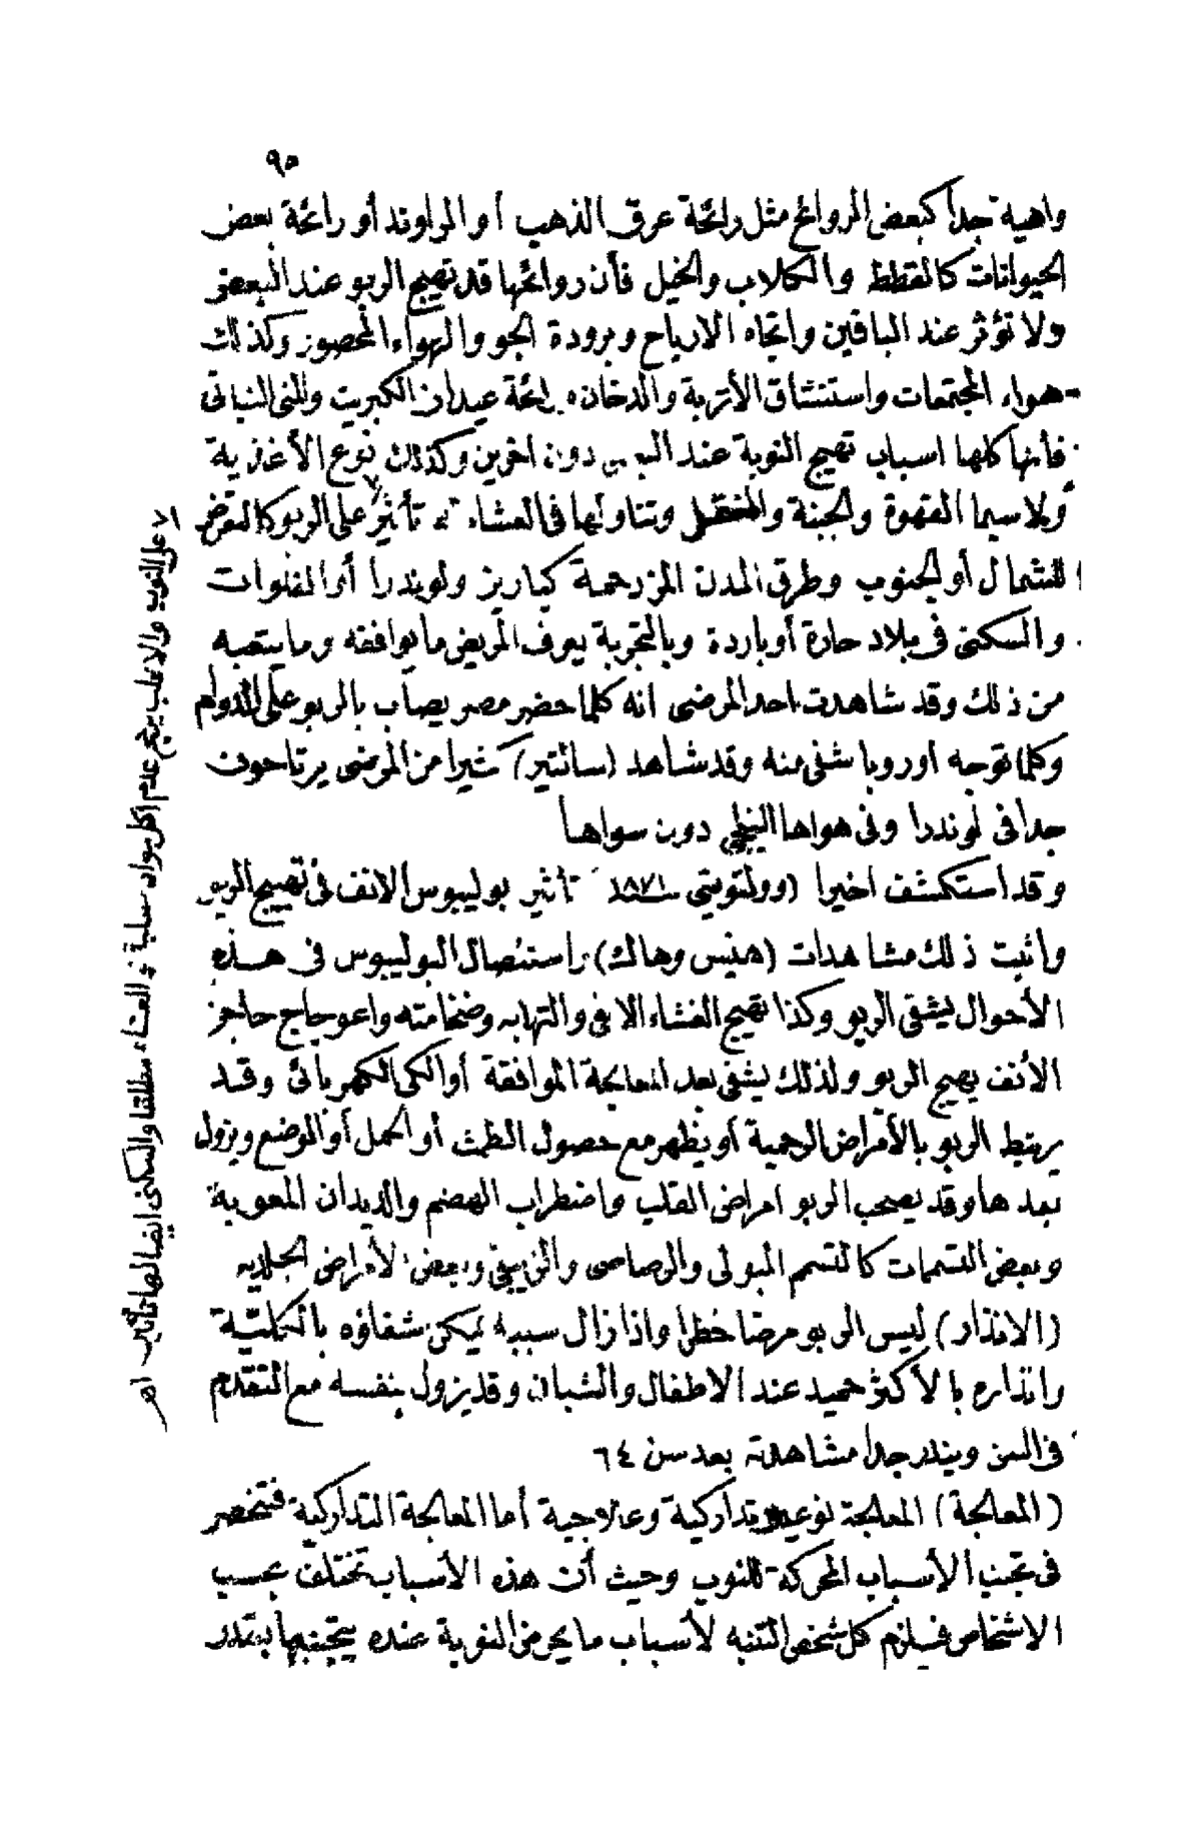 ٩٥
واهية جداً كبعض الروائح مثل رائحة عرق الذهب أو الراوند أو رائحة بعض
الحيوانات كالقطط والكلاب والخيل فأن روائحها قد تهيج الربو عند البعض
ولا تؤثر عند الباقين واتجاه الارياح وبرودة الجو والهواء المحصور وكذلك
هواء المجتمعات واستنشاق الأتربة والدخان ورائحة عيدان الكبريت والنى النباتى
فانها كلها اسباب تهيج النوبة عند البعض دون اخرين وكذلك نوع الأغذية
ولا سيما القهوة والجبنة و وتناولها فى العشاء له تأثير على الربو كالتعرض
للشمال أو الجنوب وطرق المدن المزدحمة كباريز ولوندرا أو الفلوات
والسكنى فى بلاد حارة أو باردة وبالتجربة يعرف المريض ما يوافقه وما يتعبه
من ذلك وقد شاهدت احد المرضى انه كلما حضر مصر يصاب بالربو على الدوام
وكلما توجه اوروبا شفى منه وقد شاهد (سالتير) كثيرا من المرضى يرتاحون
جدا فى لوندرا وفى هواها دون سواها
وقد استكشف اخيرا (وولتويتى سـ١٨٧١ـنة تأثير بوليبوس الانف فى تهييج الربو
واثبت ذلك مشاهدات (هنيس وهاك) راستئصال البوليبوس فى هذه
الأحوال ليشفى الربو وكذا تهيج الغشاء الانفى والتهابه وضخامته واعوجاج حاجز
الأنف يهيج الربو ولذلك يشفى بعد المعالجة الموافقة أو الكى الكهربائى وقد
يرتبط الربو بالأمراض الرحمية أو يظهر مع حصول الطمث أو الحمل أو الوضع ويزول
بعدها وقد يصحب الربو امراض القلب واضطراب الهضم والديدان المعوية
وبعض التسممات كالتسم البولى والرصاصى والزيبقى وبعض الأمراض الجلديه
(الانذار) ليس الربو مرضا خطرا واذا زال سببه يمكن شفاؤه بالكليّة
وانذاره بالأكثر حميد عند الاطفال والشبان وقد يزول بنفسه مع التقدم
فى السن ويندر جدا مشاهدته بعد سن ٦٤
(المعالجة) المعالجة نوعين تداركية وعلاجية أما المعالجة التداركية فتنحصر
فى تجنب الأسباب المحركة للنوب وحيث أن هذه الأسباب تختلف بحسب
الاشخاص فيلزم كل شخص التنبه لأسباب ما يحرض النوبة عنده يتجنبها بقدر
على النوب والاغلب يرجح عدم اكل مواد صلبة فى العشاء مطلقا والسكنى ايضا لها تأثير اهـ